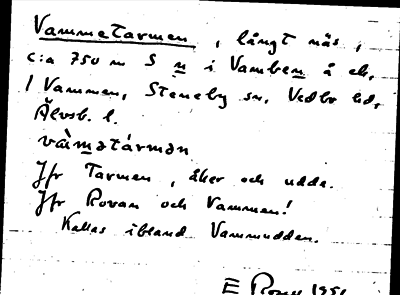 Vammetarmen, långt näs,
c:a 750 m S n i Vamben å ek.
i Vammen, Steneby sn, Vedbo hd,
Älvsb. l.
vàm̀atármən
Jfr Tarmen, åker och udde.
Jfr Rovan och Vammen!
Kallas ibland Vammudden.
E 1951